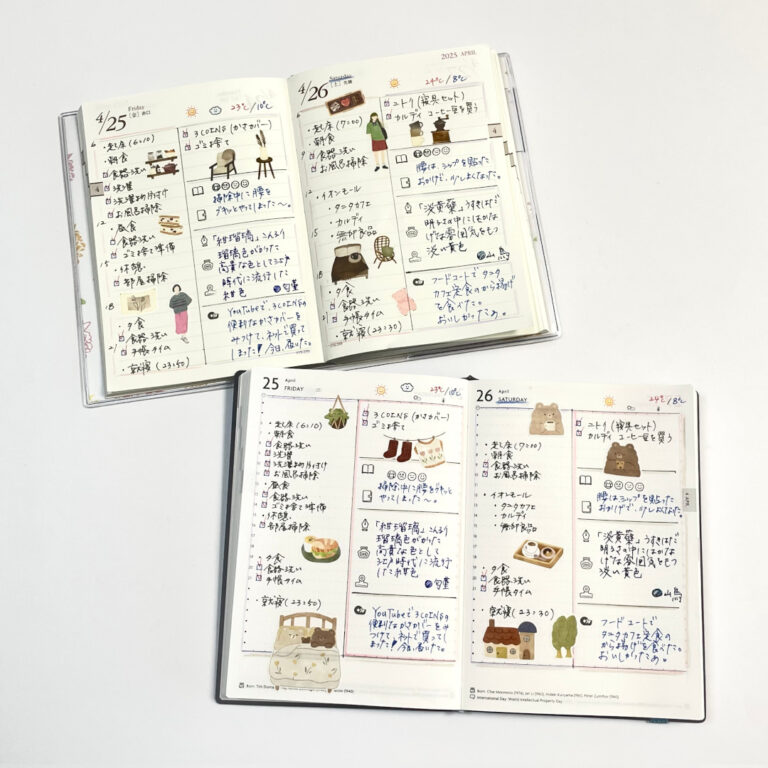 Friday
4/25 (金)
23℃/10℃
6
・起床(6:10)
・朝食
食器洗い
洗濯
洗濯物片付け
お風呂掃除
12
・昼食
食器洗い
ゴミ出て準備
15
・休憩
・部屋掃除
18
・夕食
食器洗い
手帳タイム
・就寝(23:50)
4
3COINS(かさカバー)
ゴミ出て
掃除中に腰を
グキッとやってしまった〜。
「紺瑠璃」こんるり
瑠璃色がかった
高貴な色として江戸
時代に流行した
紺色
YouTubeで3COINSの
便利なかさカバーを
みつけて、ネットで買って
しまった!今日、届いた。
2025 APRIL
Saturday
4/26 (土)
24℃/8℃
6
・起床(7:00)
・朝食
9
食器洗い
お風呂掃除
12
・イオンモール
・タニタカフェ
・カルディ
15
・無印良品
18
・夕食
食器洗い
21
手帳タイム
・就寝(23:30)
ニトリ(寝具セット)
カルディ コーヒー豆を買う
4
腰は、シップを貼った
おかげで、少しよくなった。
「淡黄蘗」うすきはだ
明るさの中にはかな
げな雰囲気をもつ
淡い黄色
山鳥
フードコートでタニタ
カフェ定食のから揚げ
を食べた。
おいしかったぁ。
25 April
FRIDAY
23℃/10℃
・起床(6:10)
・朝食
食器洗い
洗濯
洗濯物片付け
お風呂掃除
・昼食
食器洗い
ゴミ出て準備
・休憩
・部屋掃除
・夕食
食器洗い
手帳タイム
・就寝(23:50)
3COINS(かさカバー)
ゴミ出て
掃除中に腰をグキッと
やってしまった〜。
「紺瑠璃」こんるり
瑠璃色がかった
高貴な色として
江戸時代に流行
した紺色
YouTubeで3COINSの
便利なかさカバーをみ
つけて、ネットで買って
しまった!今日、届いた。
26 April
SATURDAY
24℃/8℃
・起床(7:00)
・朝食
食器洗い
お風呂掃除
・イオンモール
・タニタカフェ
・カルディ
・無印良品
・夕食
食器洗い
手帳タイム
・就寝(23:30)
ニトリ(寝具セット)
カルディ コーヒー豆を買う
4 APR.
腰は、シップを貼った
おかげで、少しよくなった。
「淡黄蘗」うすきはだ
明るさの中にはかな
げな雰囲気をもつ
淡い黄色
山鳥
フードコートで
タニタカフェ定食の
から揚げを食べた。
おいしかったぁ。
International Day: World Intellectual Property Day